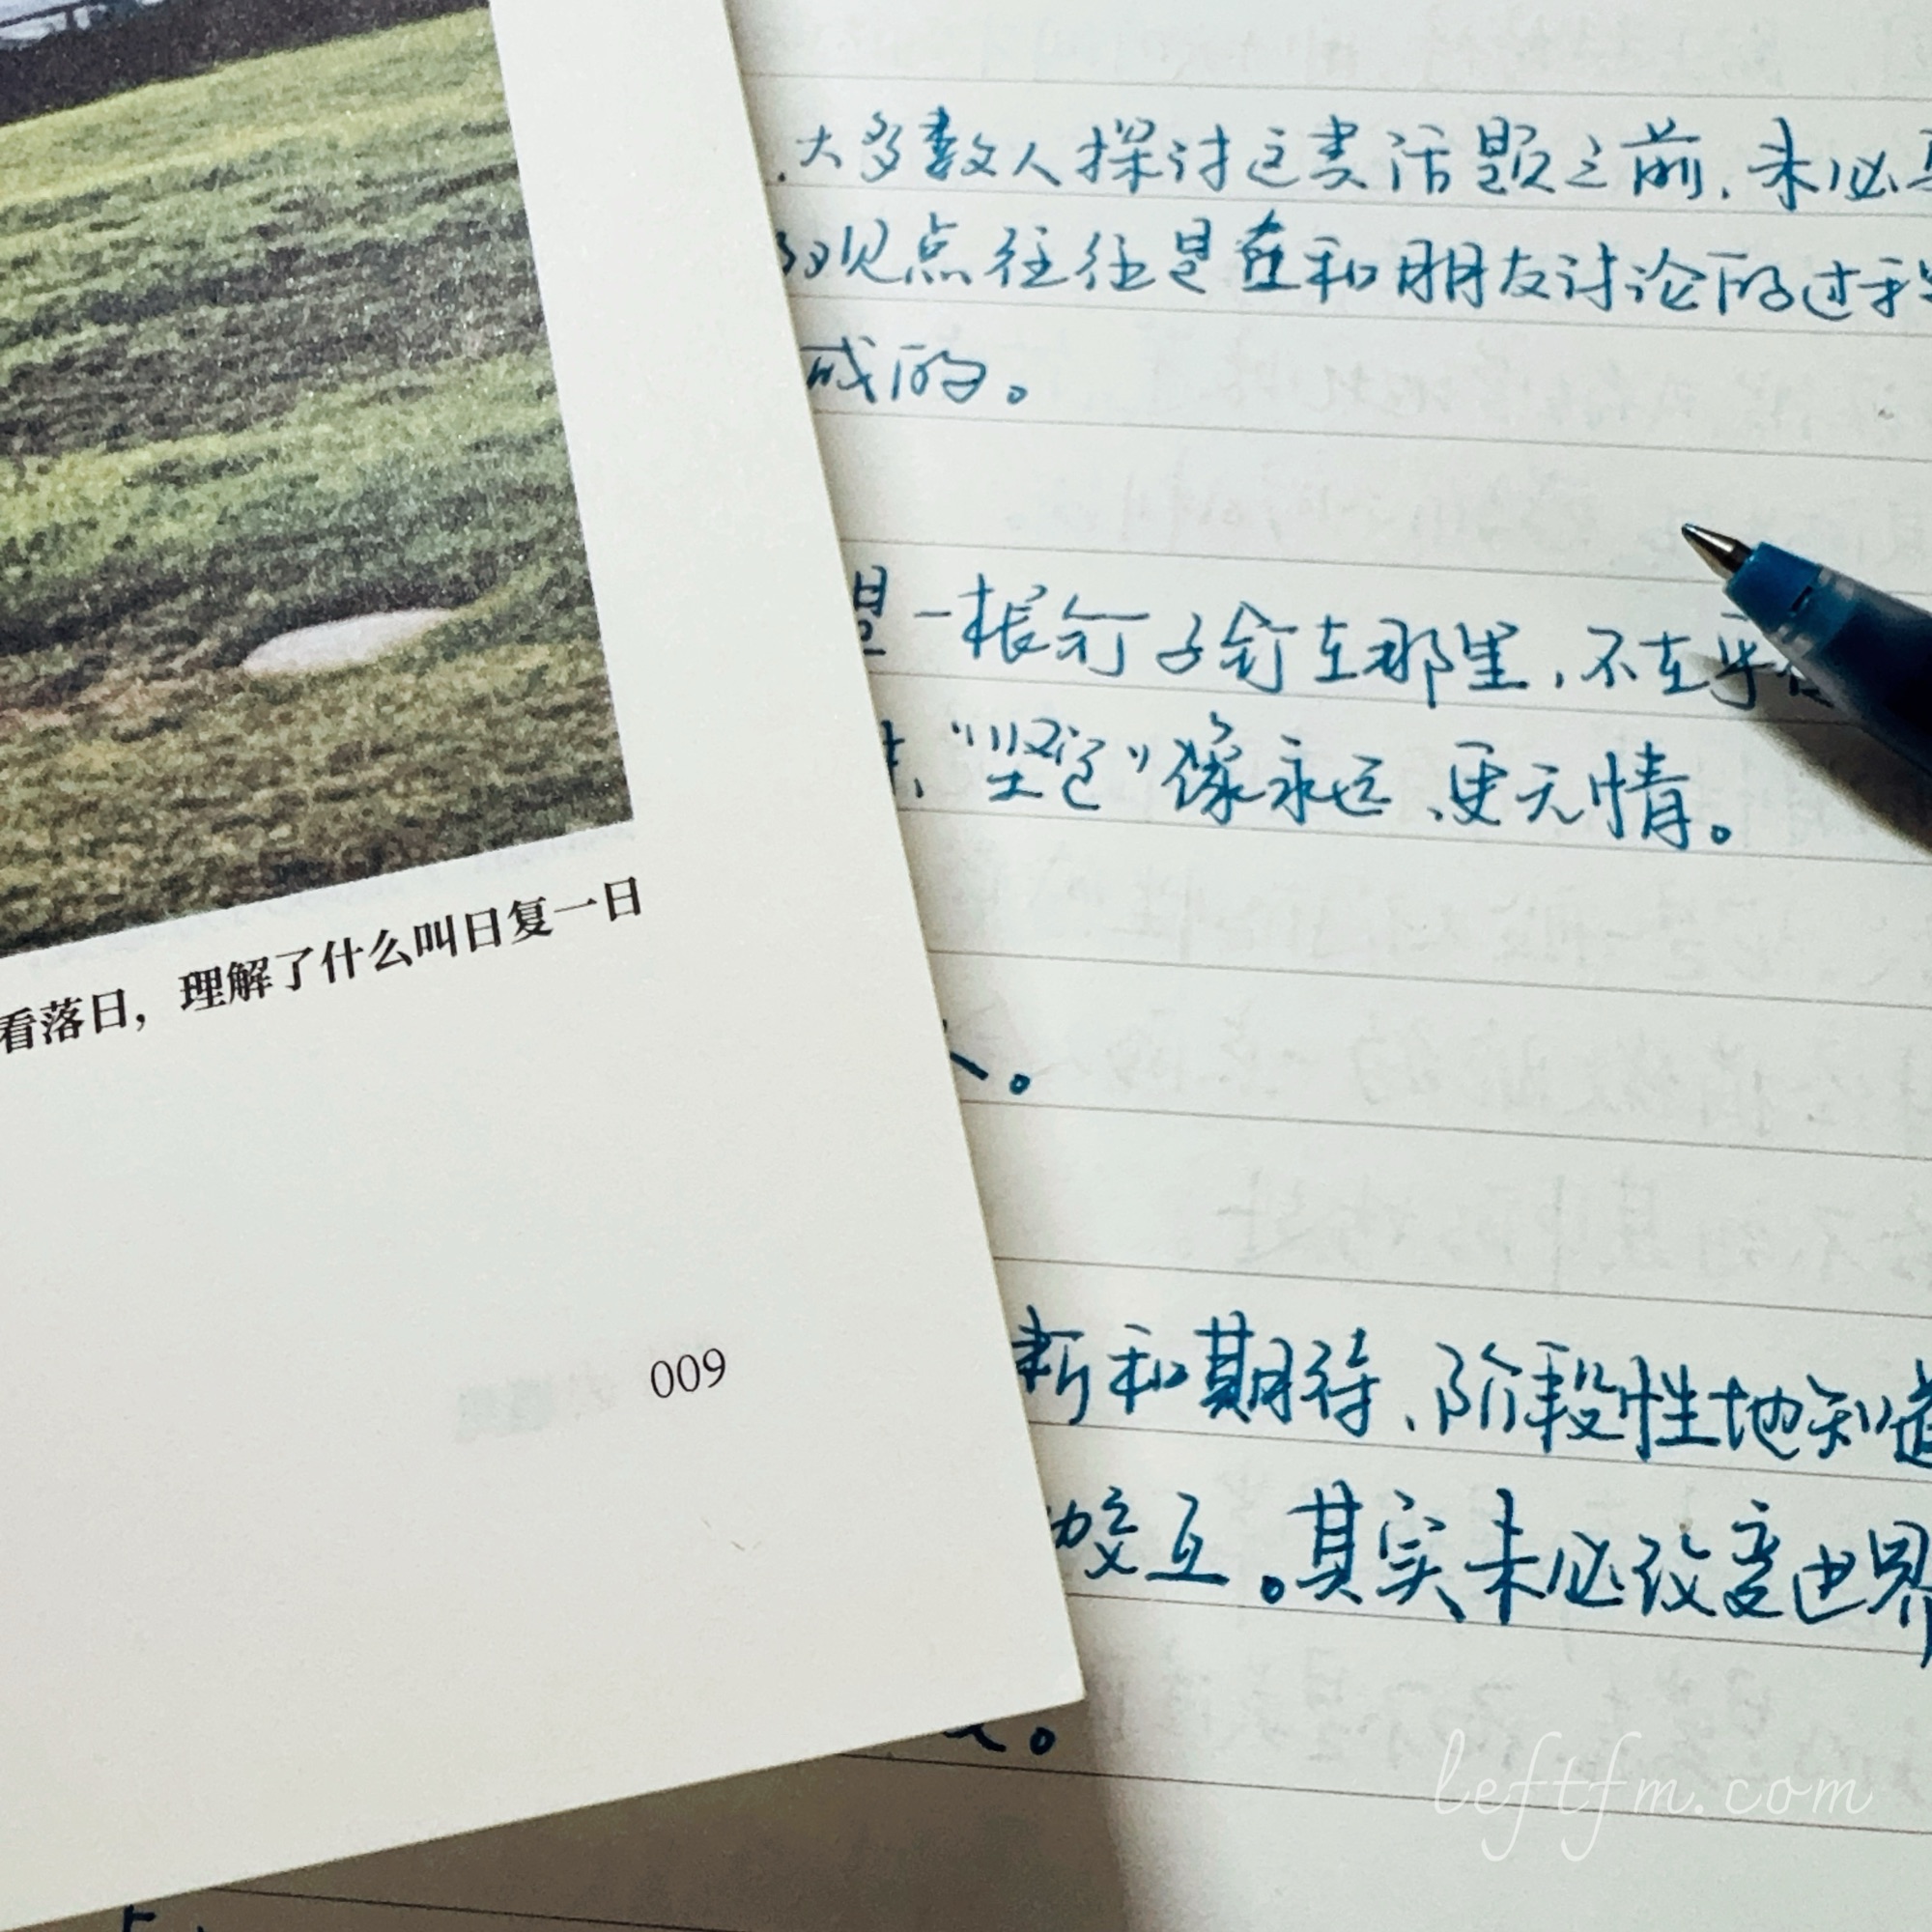 看落日，理解了什么叫日复一日
009
大多数人探讨这类话题之前，未必
观点往往是在和朋友讨论的过程
成的。
是一根钉子钉在那里，不在乎
“坚定”像永远、更无情。
新和期待、阶段性地知道
交互。其实未必改变世界
leftfm.com